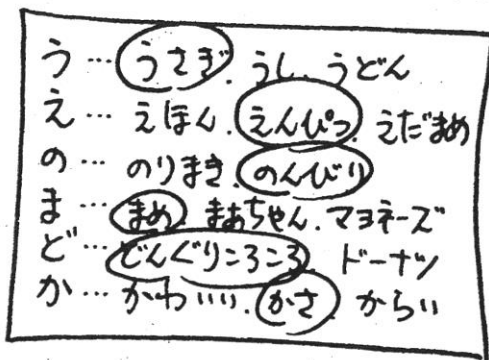 う…うさぎ、うし、うどん
え…えほん、えんぴつ、えだまめ
の…のりまき、のんびり
ま…まめ、まあちゃん、マヨネーズ
ど…どんぐりころころ、ドーナツ
か…かわいい、かさ、からい